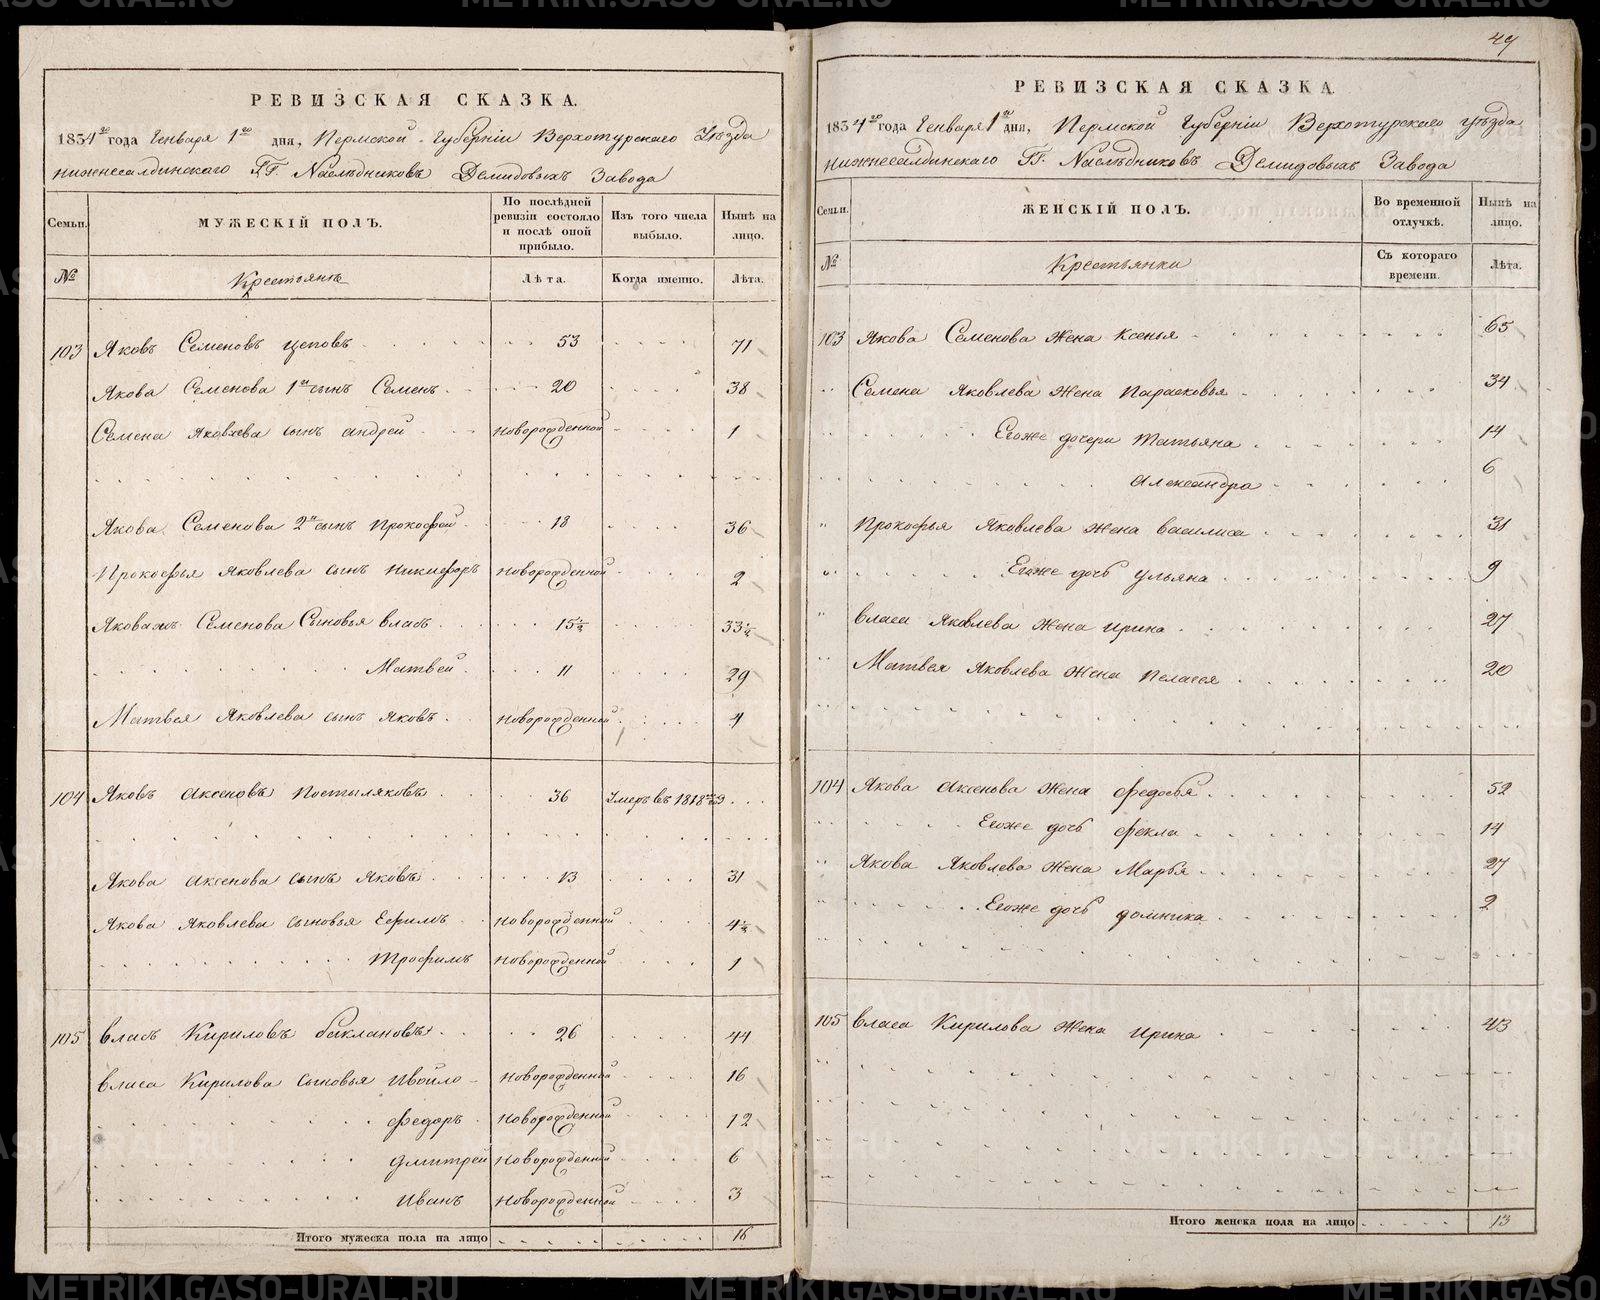 РЕВИЗСКАЯ СКАЗКА.
1834го года Генваря 1го дня, Пермской Губерніи Верхотурскаго Уѣзда
нижнесалдинскаго ГГ. Наслѣдниковъ Демидовыхъ Завода
Семьи. МУЖЕСКІЙ ПОЛЪ. По послѣдней ревизіи состояло и послѣ оной прибыло. Изъ того числа выбыло. Нынѣ на лицо.
№ Крестьянъ Лѣта. Когда именно. Лѣта.
103 Яковъ Семеновъ цеповъ 53 71
Якова Семенова 1й сынъ Семенъ 20 38
Семена Яковлева сынъ андрей новорожденной 1
Якова Семенова 2й сынъ Прокофей 18 36
Прокофья Яковлева сынъ никифоръ новорожденной 2
Якова жъ Семенова Сыновья власъ 15½ 33½
Матвей 11 29
Матвея Яковлева сынъ яковъ новорожденной 4
104 Яковъ аксеновъ Постыляковъ 36 Умеръ въ 1818мъ году
Якова аксенова сынъ Яковъ 13 31
Якова Яковлева сыновья Ефимъ новорожденной 4½
трофимъ новорожденной 1
105 власъ Кириловъ баклановъ 26 44
власа Кирилова сыновья Ивойло новорожденной 16
федоръ новорожденной 12
дмитрей новорожденной 6
Иванъ новорожденной 3
Итого мужеска пола на лицо 16
49
РЕВИЗСКАЯ СКАЗКА.
1834го года Генваря 1го дня, Пермской Губерніи Верхотурскаго уѣзда
нижнесалдинскаго ГГ. Наслѣдниковъ Демидовыхъ Завода
Семьи. ЖЕНСКІЙ ПОЛЪ. Во временной отлучкѣ. Нынѣ на лицо.
№ Крестьянки Съ котораго времени. Лѣта.
103 Якова Семенова жена Ксенья 65
Семена Яковлева жена Парасковья 34
Егоже дочери татьяна 14
александра 6
Прокофья Яковлева жена василиса 31
Егоже дочь ульяна 9
власа Яковлева жена ирина 27
Матвея Яковлева жена пелагея 20
104 Якова аксенова жена федосья 52
Егоже дочь фекла 14
Якова Яковлева жена Марья 27
Егоже дочь домника 2
105 власа Кирилова жена ирина 43
Итого женска пола на лицо 13
METRIKI.GASO-URAL.RU